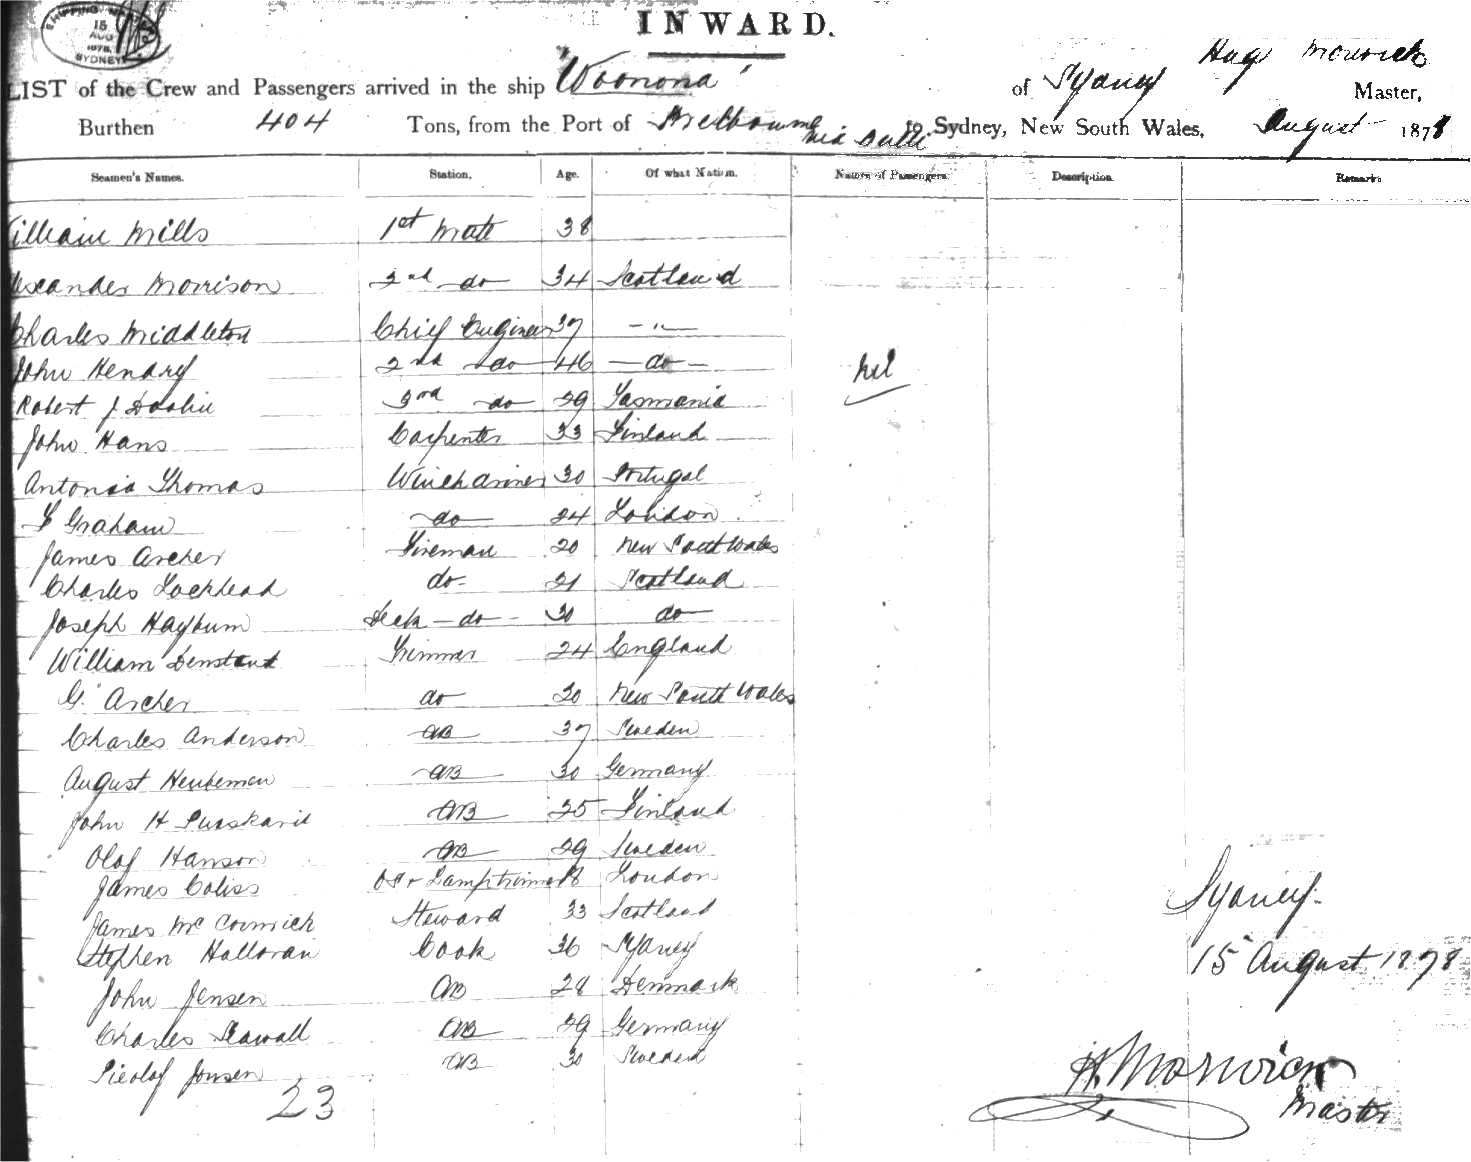 SHIPPING MASTER
15
AUG
1878
SYDNEY
INWARD.
LIST of the Crew and Passengers arrived in the ship "Woonona" of Sydney Hug Morwick Master,
Burthen 404 Tons, from the Port of Melbourne via Bulli to Sydney, New South Wales, August 1878
Seamen's Names. Station. Age. Of what Nation. Names of Passengers. Description. Remarks
William Mills 1st Mate 38
Alexander Morrison 2nd do 34 Scotland
Charles Middleton Chief Engineer 37 — " —
John Hendry 2nd do 46 — do — nil
Robert J 3rd do 29 Tasmania
John Hans Carpenter 33 Finland
Antonia Thomas 30 Portugal
F Graham do 24 London
James Archer Fireman 20 New South Wales
Charles Lockhead do 21 Scotland
Joseph Hayburn Deck do 30 do
William Trimmer 24 England
G. Archer do 20 New South Wales
Charles Anderson AB 37 Sweden
August AB 30 Germany
John H AB 25 Finland
Olof Hanson AB 29 Sweden
James Coliss OS & Lamptrimmer 18 London
James McCormick Steward 33 Scotland
Stephen Halloran Cook 36 Sydney
John Jensen AB 28 Denmark
Charles AB 29 Germany
Jonsen AB 30 Sweden
23
Sydney
15 August 1878
H. Morwick
Master